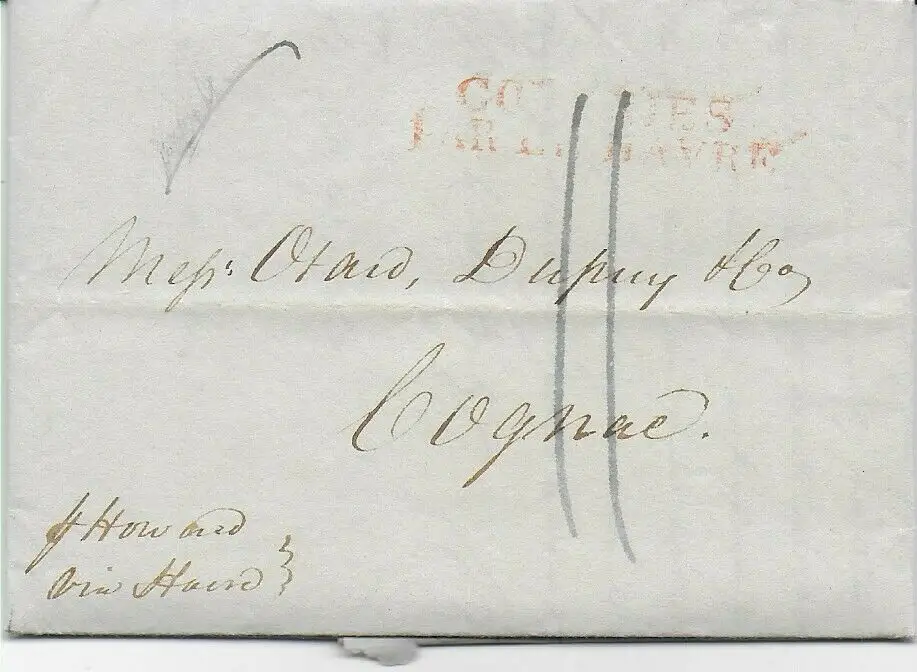 COLONIES
PAR LE HAVRE
11
Messrs. Otard, Dupuy & Co
Cognac.
pr Howard
via Havre